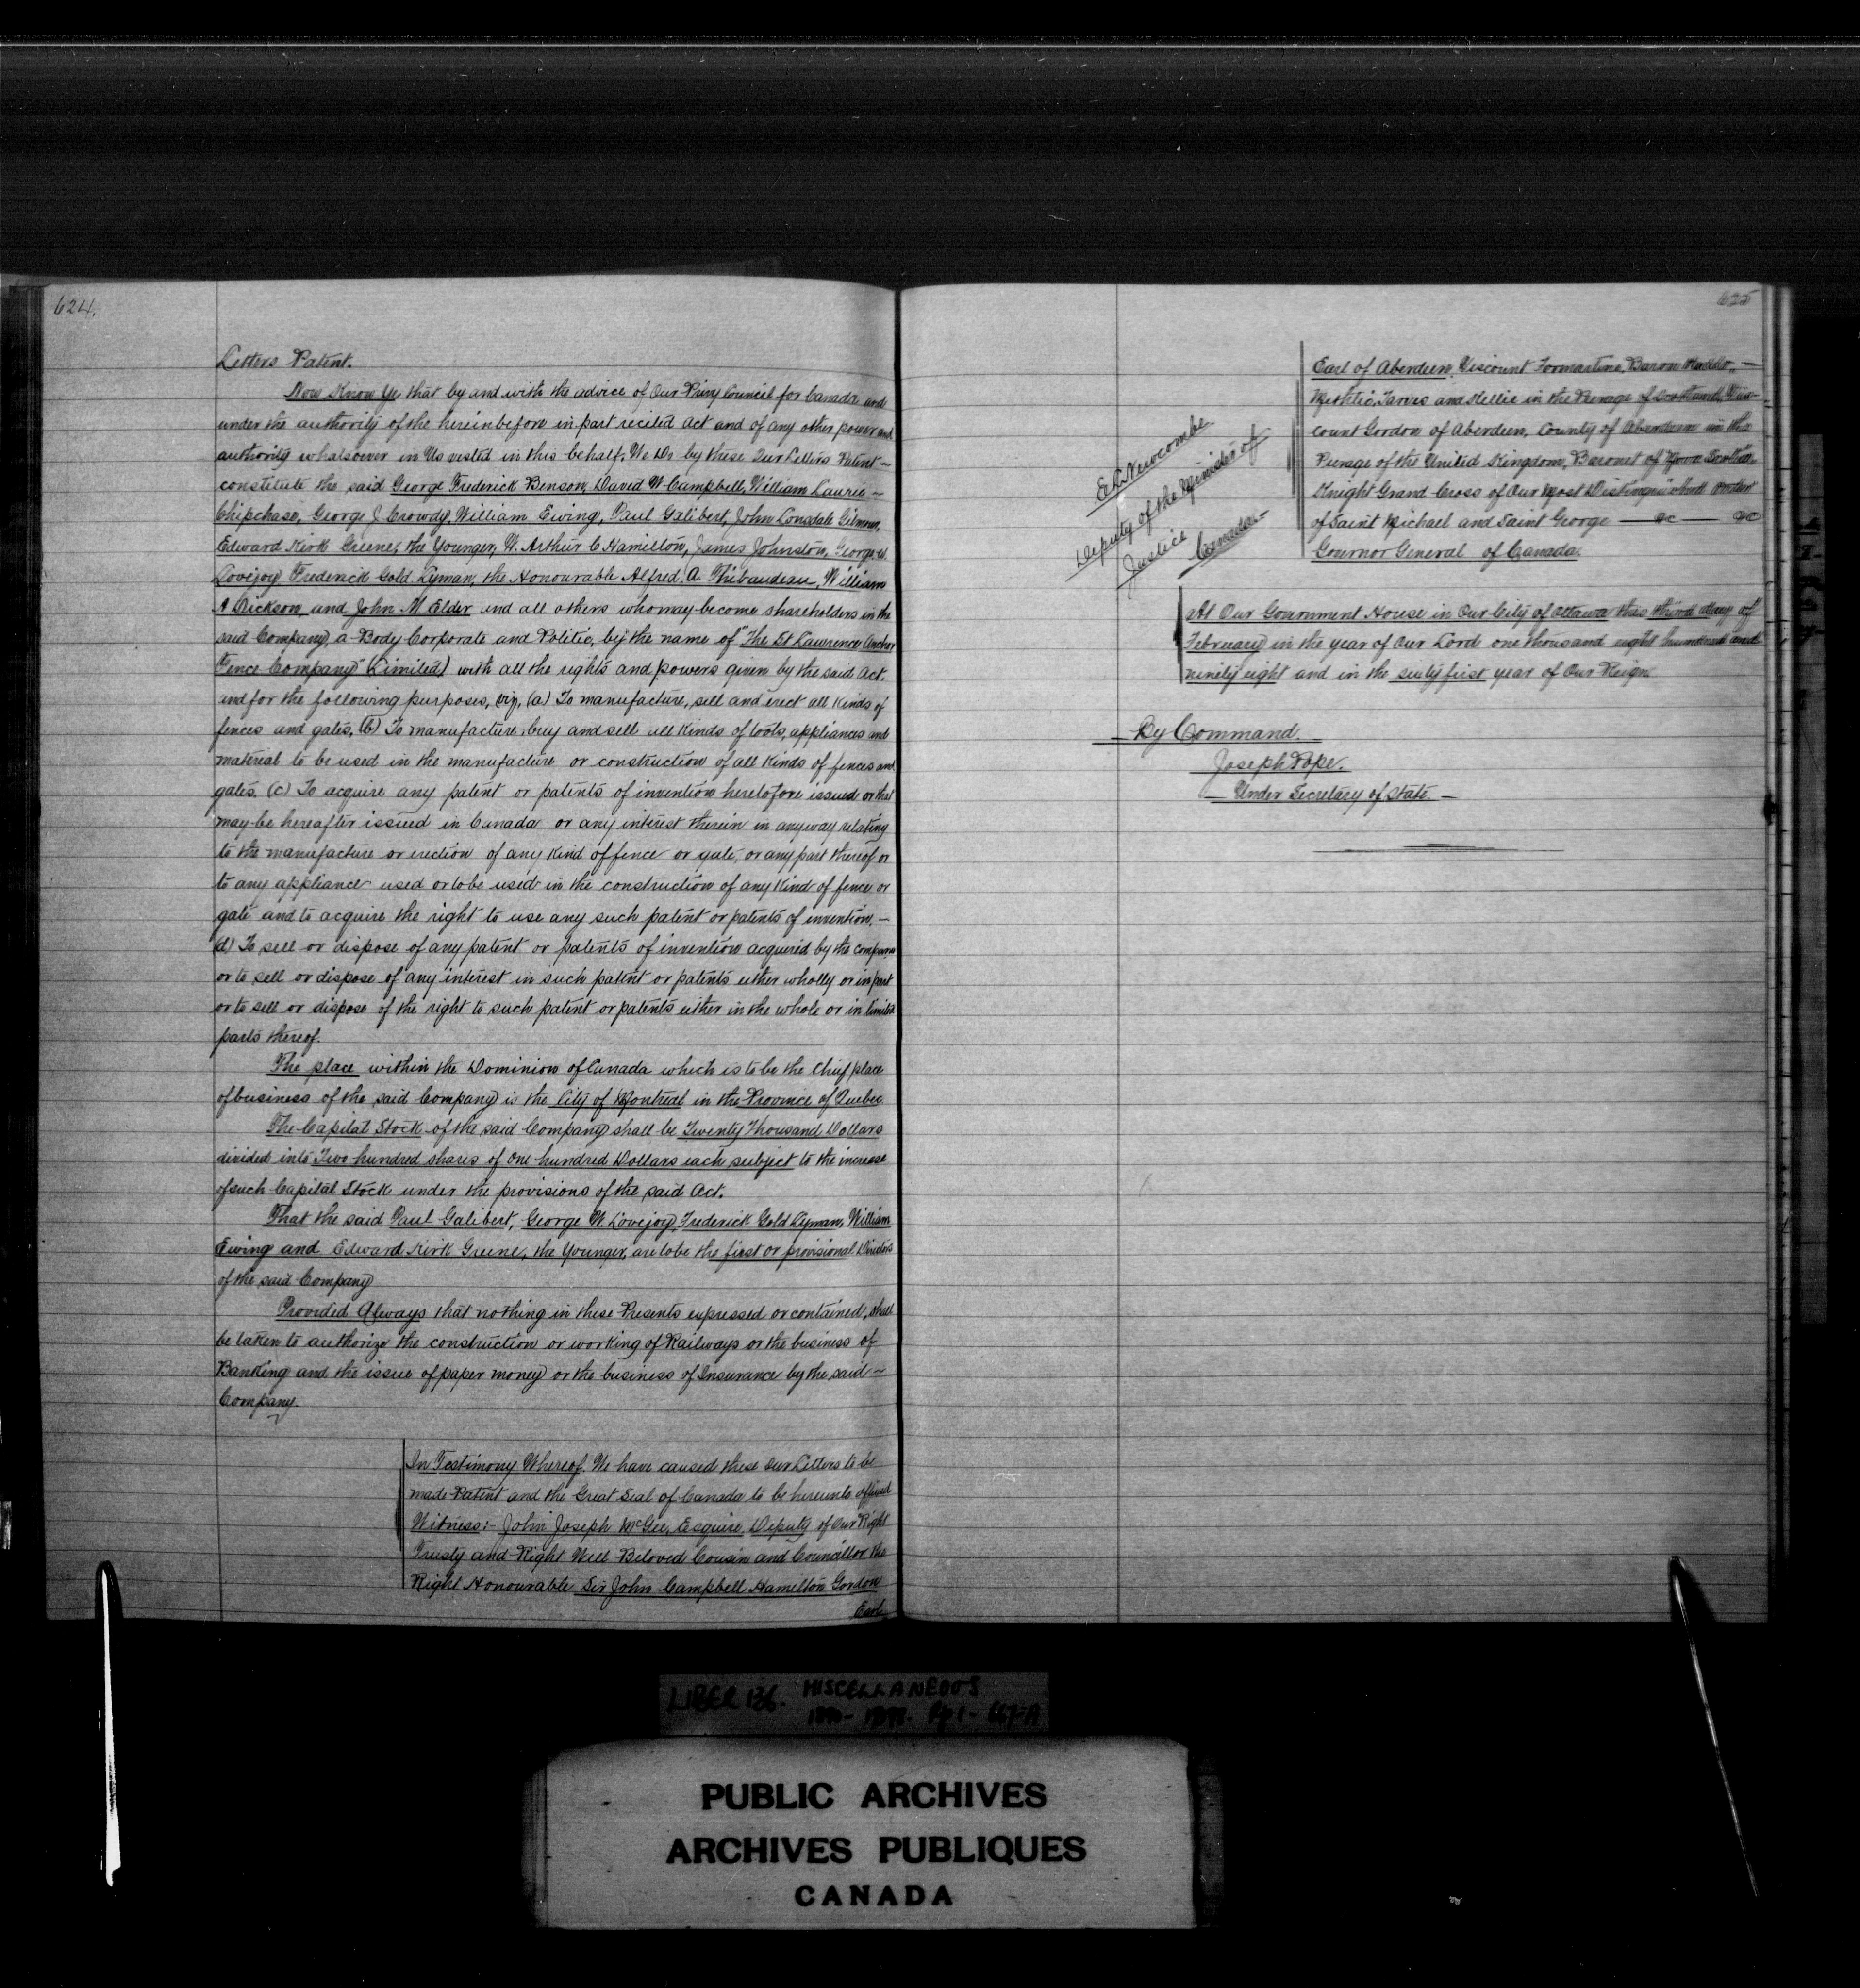 624.
Letters Patent.
Now Know Ye that by and with the advice of Our Privy Council for Canada and
under the authority of the hereinbefore in part recited Act and of any other power and
authority whatsoever in Us vested in this behalf, We Do by these Our Letters Patent -
constitute the said George Frederick Benson, David W Campbell, William Laurie -
Chipchase, George J Crowdy, William Ewing, Paul Galibert, John Lonsdale Gilmour,
Edward Kirk Greene, the Younger, W. Arthur C Hamilton, James Johnston, George W.
Lovejoy, Frederick Gold Lyman, the Honourable Alfred A Thibaudeau, William
A Dickson, and John M Elder and all others who may become shareholders in the
said Company, a Body Corporate and Politic, by the name of "The St Lawrence Anchor
Fence Company" (Limited) with all the rights and powers given by the said Act.
and for the following purposes, viz, (a) To manufacture, sell and erect all kinds of
fences and gates, (b) To manufacture, buy and sell all kinds of tools, appliances and
material to be used in the manufacture or construction of all kinds of fences and
gates. (c) To acquire any patent or patents of invention heretofore issued or that
may be hereafter issued in Canada or any interest therein in anyway relating
to the manufacture or erection of any kind of fence or gate, or any part thereof or
to any appliance used or to be used in the construction of any kind of fence or
gate and to acquire the right to use any such patent or patents of invention. -
d) To sell or dispose of any patent or patents of invention acquired by the company
or to sell or dispose of any interest in such patent or patents either wholly or in part
or to sell or dispose of the right to such patent or patents either in the whole or in limited
parts thereof.
The place within the Dominion of Canada which is to be the Chief place
of business of the said Company is the City of Montreal in the Province of Quebec
The Capital Stock of the said Company shall be Twenty Thousand Dollars
divided into Two hundred shares of One hundred Dollars each subject to the increase
of such Capital Stock under the provisions of the said Act.
That the said Paul Galibert, George W. Lovejoy, Frederick Gold Lyman, William
Ewing and Edward Kirk Greene, the Younger, are to be the first or provisional Directors
of the said Company
Provided Always that nothing in these Presents expressed or contained, shall
be taken to authorize the construction or working of Railways or the business of
Banking and the issue of paper money or the business of Insurance by the said -
Company.
In Testimony Whereof, We have caused these Our Letters to be
made Patent and the Great Seal of Canada to be hereunto affixed
Witness:- John Joseph McGee, Esquire, Deputy of Our Right
Trusty and Right Well Beloved Cousin and Councillor the
Right Honourable Sir John Campbell Hamilton Gordon
Earl
625
Earl of Aberdeen, Viscount Formartine, Baron Haddo, -
Methlic, Tarves and Kellie in the Peerage of Scotland, Vis-
count Gordon of Aberdeen, County of Aberdeen in the
Peerage of the United Kingdom, Baronet of Nova Scotia,
Knight Grand Cross of Our Most Distinguished Order
of Saint Michael and Saint George - &c - &c
Governor General of Canada.
E L Newcombe
Deputy of the Minister of
Justice
Canada -
At Our Government House in Our City of Ottawa this third day of
February in the year of Our Lord one thousand eight hundred and
ninety eight and in the sixty first year of Our Reign.
By Command.
Joseph Pope.
Under Secretary of State. -
LIBER 136. MISCELLANEOUS
PUBLIC ARCHIVES
ARCHIVES PUBLIQUES
CANADA